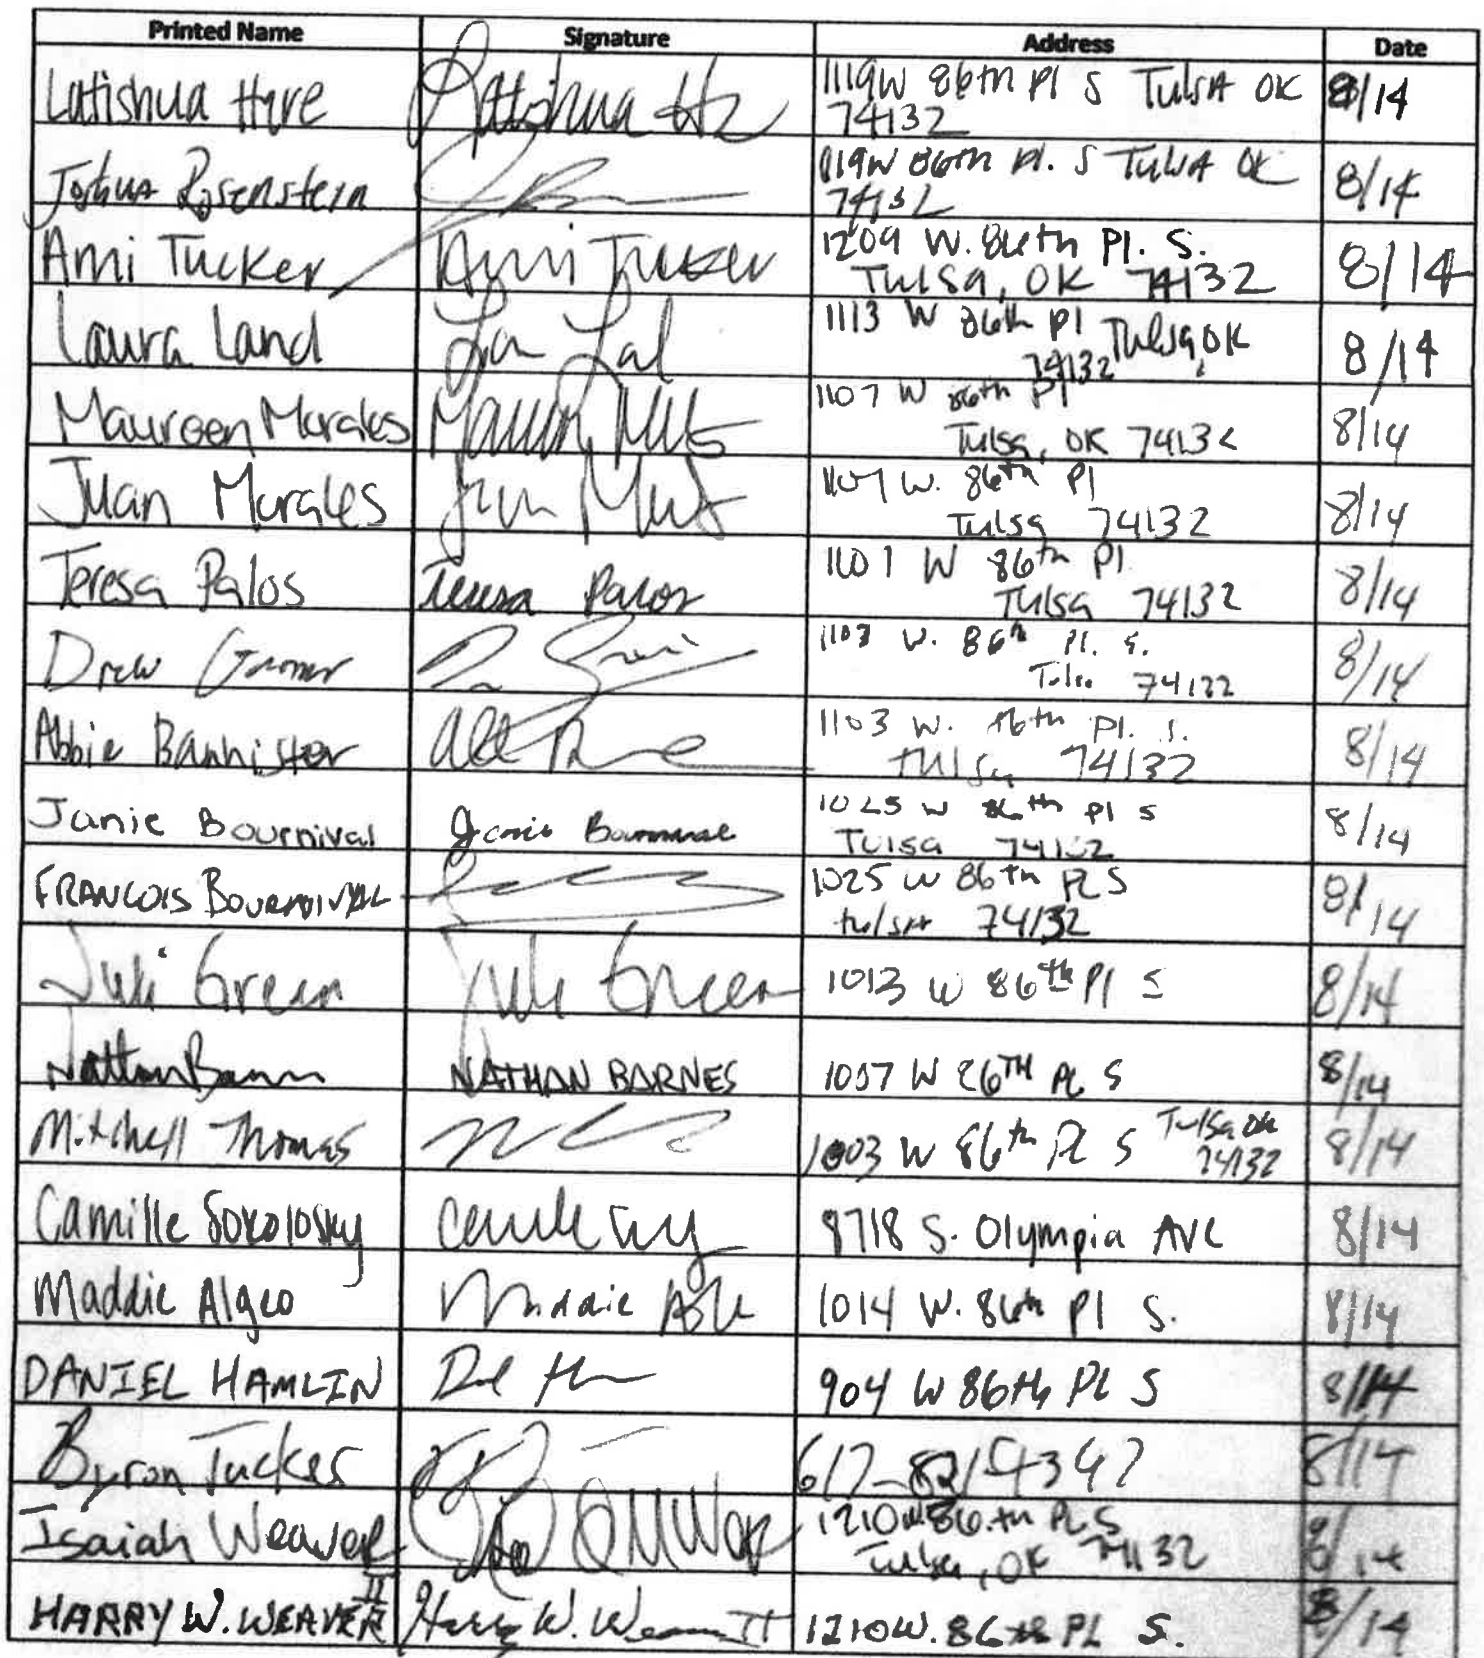 Printed Name Signature Address Date
Latishua Hare Latishua H 1119W 86th Pl S Tulsa OK 8/14
74132
Joshua Rosenstein 1119W 86th Pl. S Tulsa OK 8/14
74132
Ami Tucker Ami Tucker 1209 W. 86th Pl. S. 8/14
Tulsa, OK 74132
Laura Land 1113 W 86th Pl Tulsa, OK 8/14
74132
Maureen Morales 1107 W 86th Pl 8/14
Tulsa, OK 74132
Juan Morales Juan 1107 W. 86th Pl 8/14
Tulsa 74132
Teresa Palos Teresa Palos 1101 W 86th Pl 8/14
Tulsa 74132
Drew 1103 W. 86th Pl. S. 8/14
Tulsa 74132
Abbie Bannister 1103 W. 86th Pl. S. 8/14
Tulsa 74132
Janie Bournival Janie Bournival 1025 W 86th Pl S 8/14
Tulsa 74132
FRANCOIS BOURNIVAL 1025 W 86th PL S 8/14
tulsa 74132
Juli Green Juli Green 1013 W 86th Pl S 8/14
Nathan Barnes NATHAN BARNES 1007 W 86TH PL S 8/14
Mitchell Thomas 1003 W 86th PL S Tulsa OK 8/14
74132
Camille Sokolosky 8718 S. Olympia Ave 8/14
Maddie Algeo Maddie 1014 W. 86th Pl S. 8/14
DANIEL HAMLIN 904 W 86th PL S 8/14
Byron Tucker 8/14
Isaiah Weaver 1210 W 86th PL S 8/14
Tulsa, OK 74132
HARRY W. WEAVER II Harry W. Weaver II 1210W. 86th PL S. 8/14